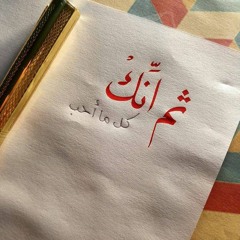 ثم أنّكْ
كل ما أحب